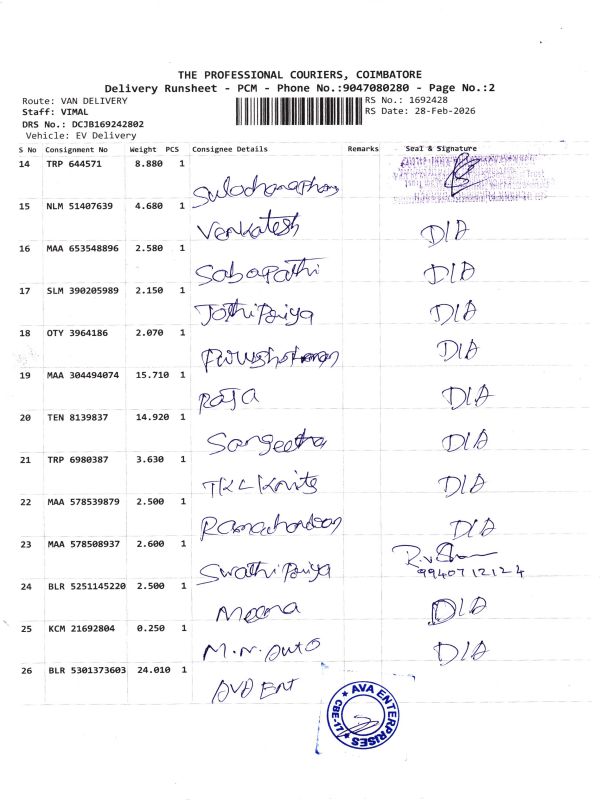 THE PROFESSIONAL COURIERS, COIMBATORE
Delivery Runsheet - PCM - Phone No.:9047080280 - Page No.:2
Route: VAN DELIVERY RS No.: 1692428
Staff: VIMAL RS Date: 28-Feb-2026
DRS No.: DCJB169242802
Vehicle: EV Delivery
S No Consignment No Weight PCS Consignee Details Remarks Seal & Signature
14 TRP 644571 8.880 1
15 NLM 51407639 4.680 1 Venkatesh D/A
16 MAA 653548896 2.580 1 Sabapathi D/A
17 SLM 390205989 2.150 1 Jothi Priya D/A
18 OTY 3964186 2.070 1 Purushothaman D/A
19 MAA 304494074 15.710 1 RAJA D/A
20 TEN 8139837 14.920 1 Sangeetha D/A
21 TRP 6980387 3.630 1 TKL Knits D/A
22 MAA 578539879 2.500 1 Ramachandran D/A
23 MAA 578508937 2.600 1 Swathi Priya 9940712124
24 BLR 5251145220 2.500 1 Meena D/A
25 KCM 21692804 0.250 1 M.N. Auto D/A
26 BLR 5301373603 24.010 1 AVA Ent
AVA ENTERPRISES
CBE-17